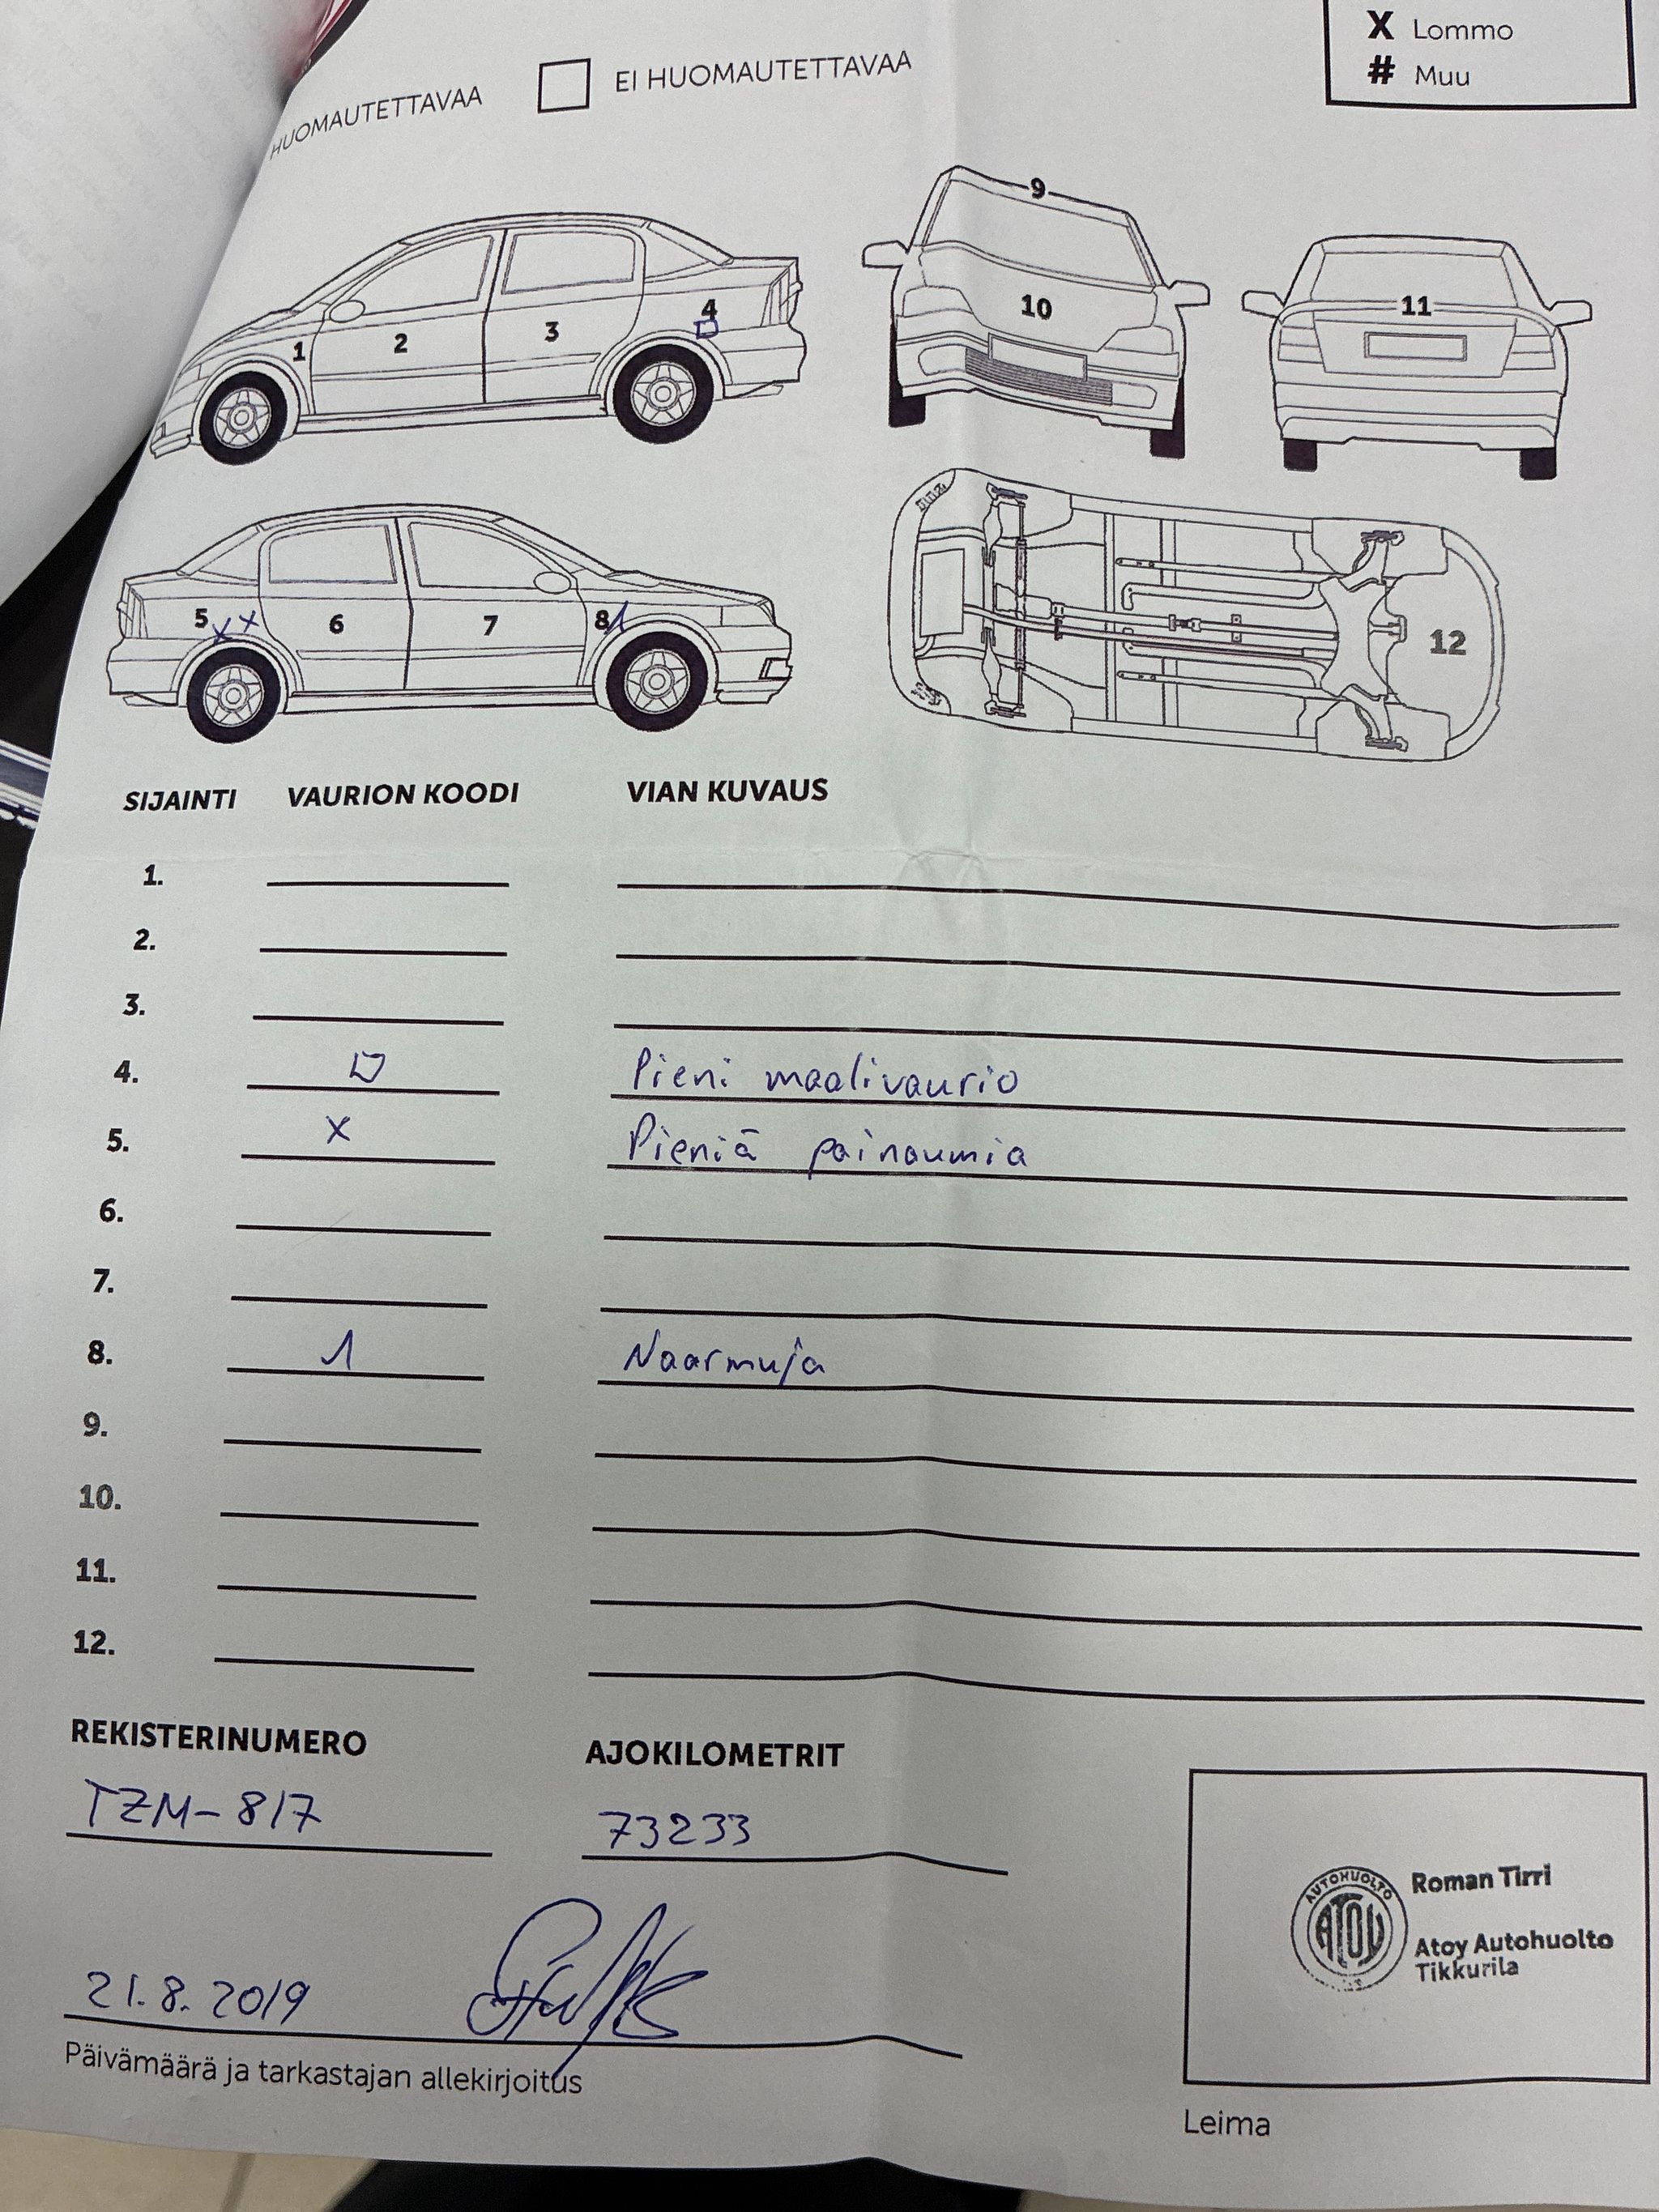 X Lommo
# Muu
HUOMAUTETTAVAA EI HUOMAUTETTAVAA
1 2 3 4
9
10
11
5 X X 6 7 8
12
SIJAINTI VAURION KOODI VIAN KUVAUS
1.
2.
3.
4. Pieni maalivaurio
5. X Pieniä painaumia
6.
7.
8. Naarmuja
9.
10.
11.
12.
REKISTERINUMERO AJOKILOMETRIT
TZM-817 73233
AUTOHUOLTO
ATOY
Roman Tirri
Atoy Autohuolto
Tikkurila
21.8.2019
Päivämäärä ja tarkastajan allekirjoitus
Leima